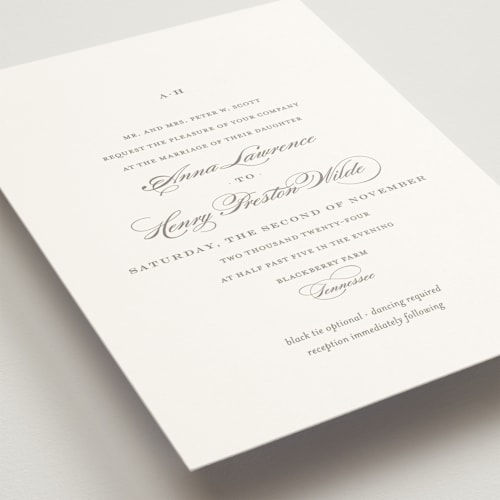 A·H
MR. AND MRS. PETER W. SCOTT
REQUEST THE PLEASURE OF YOUR COMPANY
AT THE MARRIAGE OF THEIR DAUGHTER
Anna Lawrence
· TO ·
Henry Preston Wilde
SATURDAY, THE SECOND OF NOVEMBER
TWO THOUSAND TWENTY-FOUR
AT HALF PAST FIVE IN THE EVENING
BLACKBERRY FARM
Tennessee
black tie optional • dancing required
reception immediately following